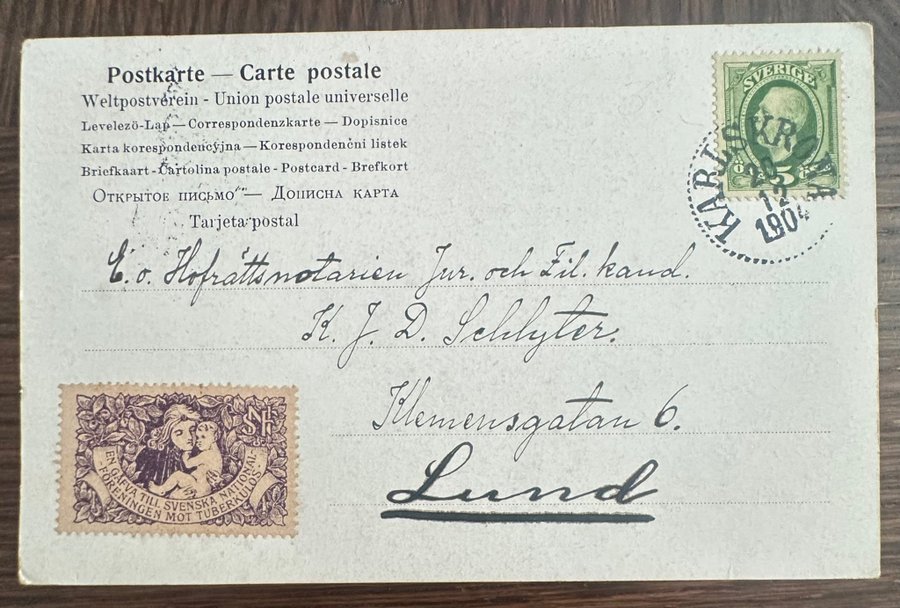 Postkarte — Carte postale
Weltpostverein - Union postale universelle
Levelezö-Lap — Correspondenzkarte — Dopisnice
Karta korespondencyjna — Korespondenční listek
Briefkaart - Cartolina postale - Postcard - Brefkort
Открытое письмо — Дописна карта
Tarjeta postal
SVERIGE
5
KARLSKRONA
12
1904
E. o. Hofrättsnotarien Jur. och Fil. kand.
K. J. D. Schlyter.
Klemensgatan 6.
Lund
EN GÅFVA TILL SVENSKA NATIONAL-
FÖRENINGEN MOT TUBERKULOS